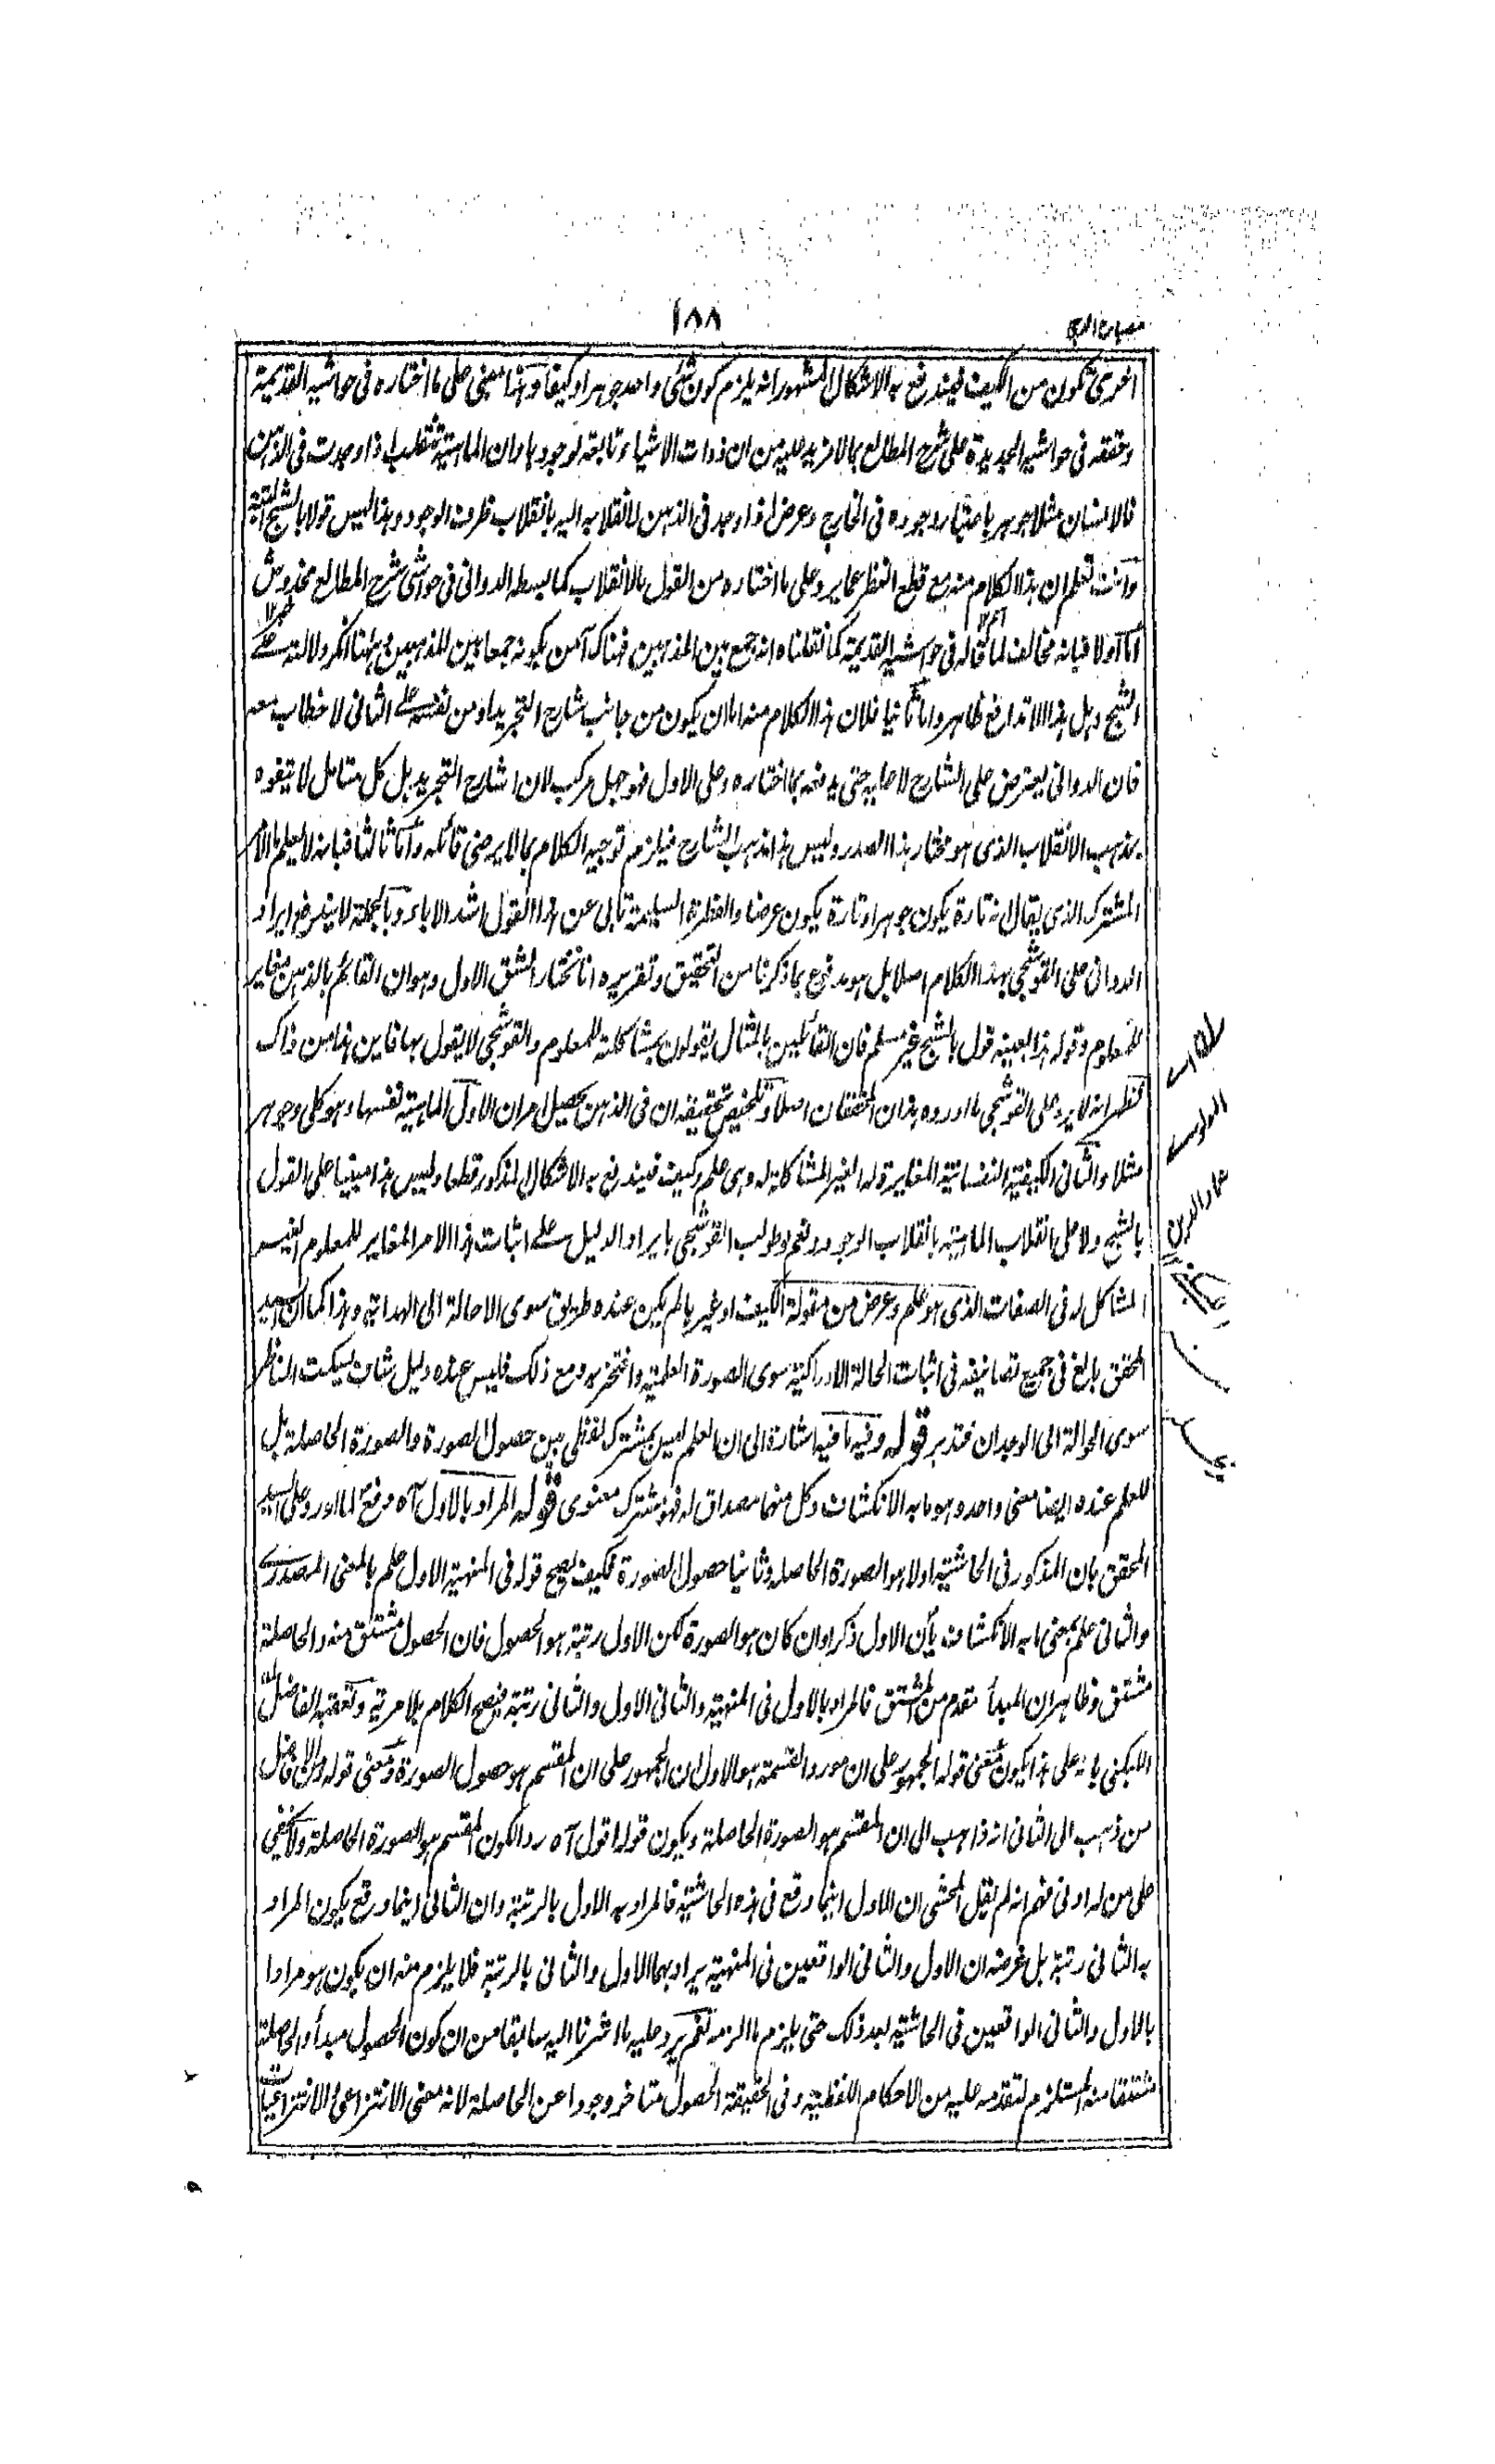 ١٨٨
مصباح الدجى
اخرى تكون من الكيف فيندفع به الاشكال المشهور انه يلزم كون شئ واحد جوهرا وكيفا وهذا مبنى على ما اختاره فى حواشيه القديمة
وحققه فى حواشيه الجديدة على شرح المطالع بما لا مزيد عليه من ان ذوات الاشياء تابعة لوجودها وان الماهية تنقلب اذا وجدت فى الذهن
فالانسان مثلا جوهر باعتبار وجوده فى الخارج وعرض اذا وجد فى الذهن لانقلابه اليه بانقلاب ظرف الوجود وهذا ليس قولا بالشبح البتة
وانت تعلم ان هذا الكلام منه مع قطع النظر عما يرد على ما اختاره من القول بالانقلاب كما بسطه الدوانى فى حواشى شرح المطالع مخدوش
اما اولا فبانه مخالف لما قاله فى حواشيه القديمة كما نقلناه انه جمع بين المذهبين فهناك آمن بكونه جمعا بين المذهبين وههنا انكر دلالته على
الشبح وهل هذا الا تدافع ظاهر واما ثانيا فلان هذا الكلام منه اما ان يكون من جانب شارح التجريد او من نفسه على الثانى لا خطاب معه
فان الدوانى يعترض على الشارح لا عليه حتى يدفعه بما اختاره وعلى الاول فهو جهل مركب لان شارح التجريد بل كل متامل لا يتفوه
بمذهب الانقلاب الذى هو مختار هذا الصدر وليس هذا مذهب الشارح فيلزم توجيه الكلام بما لا يرضى قائله واما ثالثا فبانه لا يعلم ما الامر
المشترك الذى يقال انه تارة يكون جوهرا وتارة يكون عرضا والفطرة السليمة تابى عن هذا القول اشد الاباء وبالجملة لا يندفع ايراد
الدوانى على القوشجى بهذا الكلام اصلا بل هو مدفوع بما ذكرنا من التحقيق وتقريره انا نختار الشق الاول وهو ان القائم بالذهن مغاير
للمعلوم وقوله هذا بعينه قول بالشبح غير مسلم فان القائلين بالمثال يقولون بمشاكلته للمعلوم والقوشجى لا يقول بها فاين هذا من ذاك
فظهر انه لا يرد على القوشجى ما اورده هذان المحققان اصلا وتلخيص تحقيقه ان فى الذهن يحصل امران الاول الماهية نفسها وهو كلى وجوهر
مثلا والثانى الكيفية النفسانية المغايرة له الغير المشاكلة له وهى علم وكيف فيندفع به الاشكال المذكور قطعا وليس هذا مبنيا على القول
بالشبح ولا على انقلاب الماهية بانقلاب الوجود نعم لو طولب القوشجى بايراد الدليل على اثبات هذا الامر المغاير للمعلوم الغير
المشاكل له فى الصفات الذى هو علم وعرض من مقولة الكيف او غيرها لم يكن عنده طريق سوى الاحالة الى البداهة وهذا كما ان السيد
المحقق بالغ فى جميع تصانيفه فى اثبات الحالة الادراكية سوى الصورة العلمية وافتخر به ومع ذلك فليس عنده دليل شاف يسكت الناظر
سوى الحوالة الى الوجدان فتدبر قوله وفيه ما فيه اشارة الى ان العلم ليس بمشترك لفظى بين حصول الصورة والصورة الحاصلة بل
للعلم عنده ايضا معنى واحد وهو ما به الانكشاف وكل منهما مصداق له فهو مشترك معنوى قوله المراد بالاول آه دفع لما اورد على السيد
المحقق بان المذكور فى الحاشية اولا هو الصورة الحاصلة وثانيا حصول الصورة فكيف يصح قوله فى المنهية الاول علم بالمعنى المصدرى
والثانى علم بمعنى ما به الانكشاف بأن الاول ذكرا وان كان هو الصورة لكن الاول رتبة هو الحصول فان الحصول مشتق منه والحاصلة
مشتق وظاهر ان المبدأ متقدم من المشتق فالمراد بالاول فى المنهية والثانى الاول والثانى رتبة فيصح الكلام بلا مرية وتعقبه الفاضل
اللبكنى بانه على هذا يكون معنى قوله الجمهور على ان مورد القسمة هو الاول ان الجمهور على ان المقسم هو حصول الصورة ومعنى قوله ومن الافاضل
من ذهب الى الثانى انه ذاهب الى ان المقسم هو الصورة الحاصلة ويكون قوله اقول آه ردا لكون المقسم هو الصورة الحاصلة ولا يخفى
على من له ادنى فهم انه لم يقل المحشى ان الاول اينما وقع فى هذه الحاشية فالمراد به الاول بالرتبة وان الثانى اينما وقع يكون المراد
به الثانى رتبة بل غرضه ان الاول والثانى الواقعين فى المنهية يراد بهما الاول والثانى بالرتبة فلا يلزم منه ان يكون هو مرادا
بالاول والثانى الواقعين فى الحاشية بعد ذلك حتى يلزم ما الزمه نعم يرد عليه ما اشرنا اليه سابقا من ان كون الحصول مبدأ والحاصلة
مشتقا منه المستلزم لتقدمه عليه من الاحكام اللفظية وفى الحقيقة الحصول متاخر وجودا عن الحاصلة لانه معنى الانتزاعى الانتزاعيات
اى
المولوى
عماد الدين